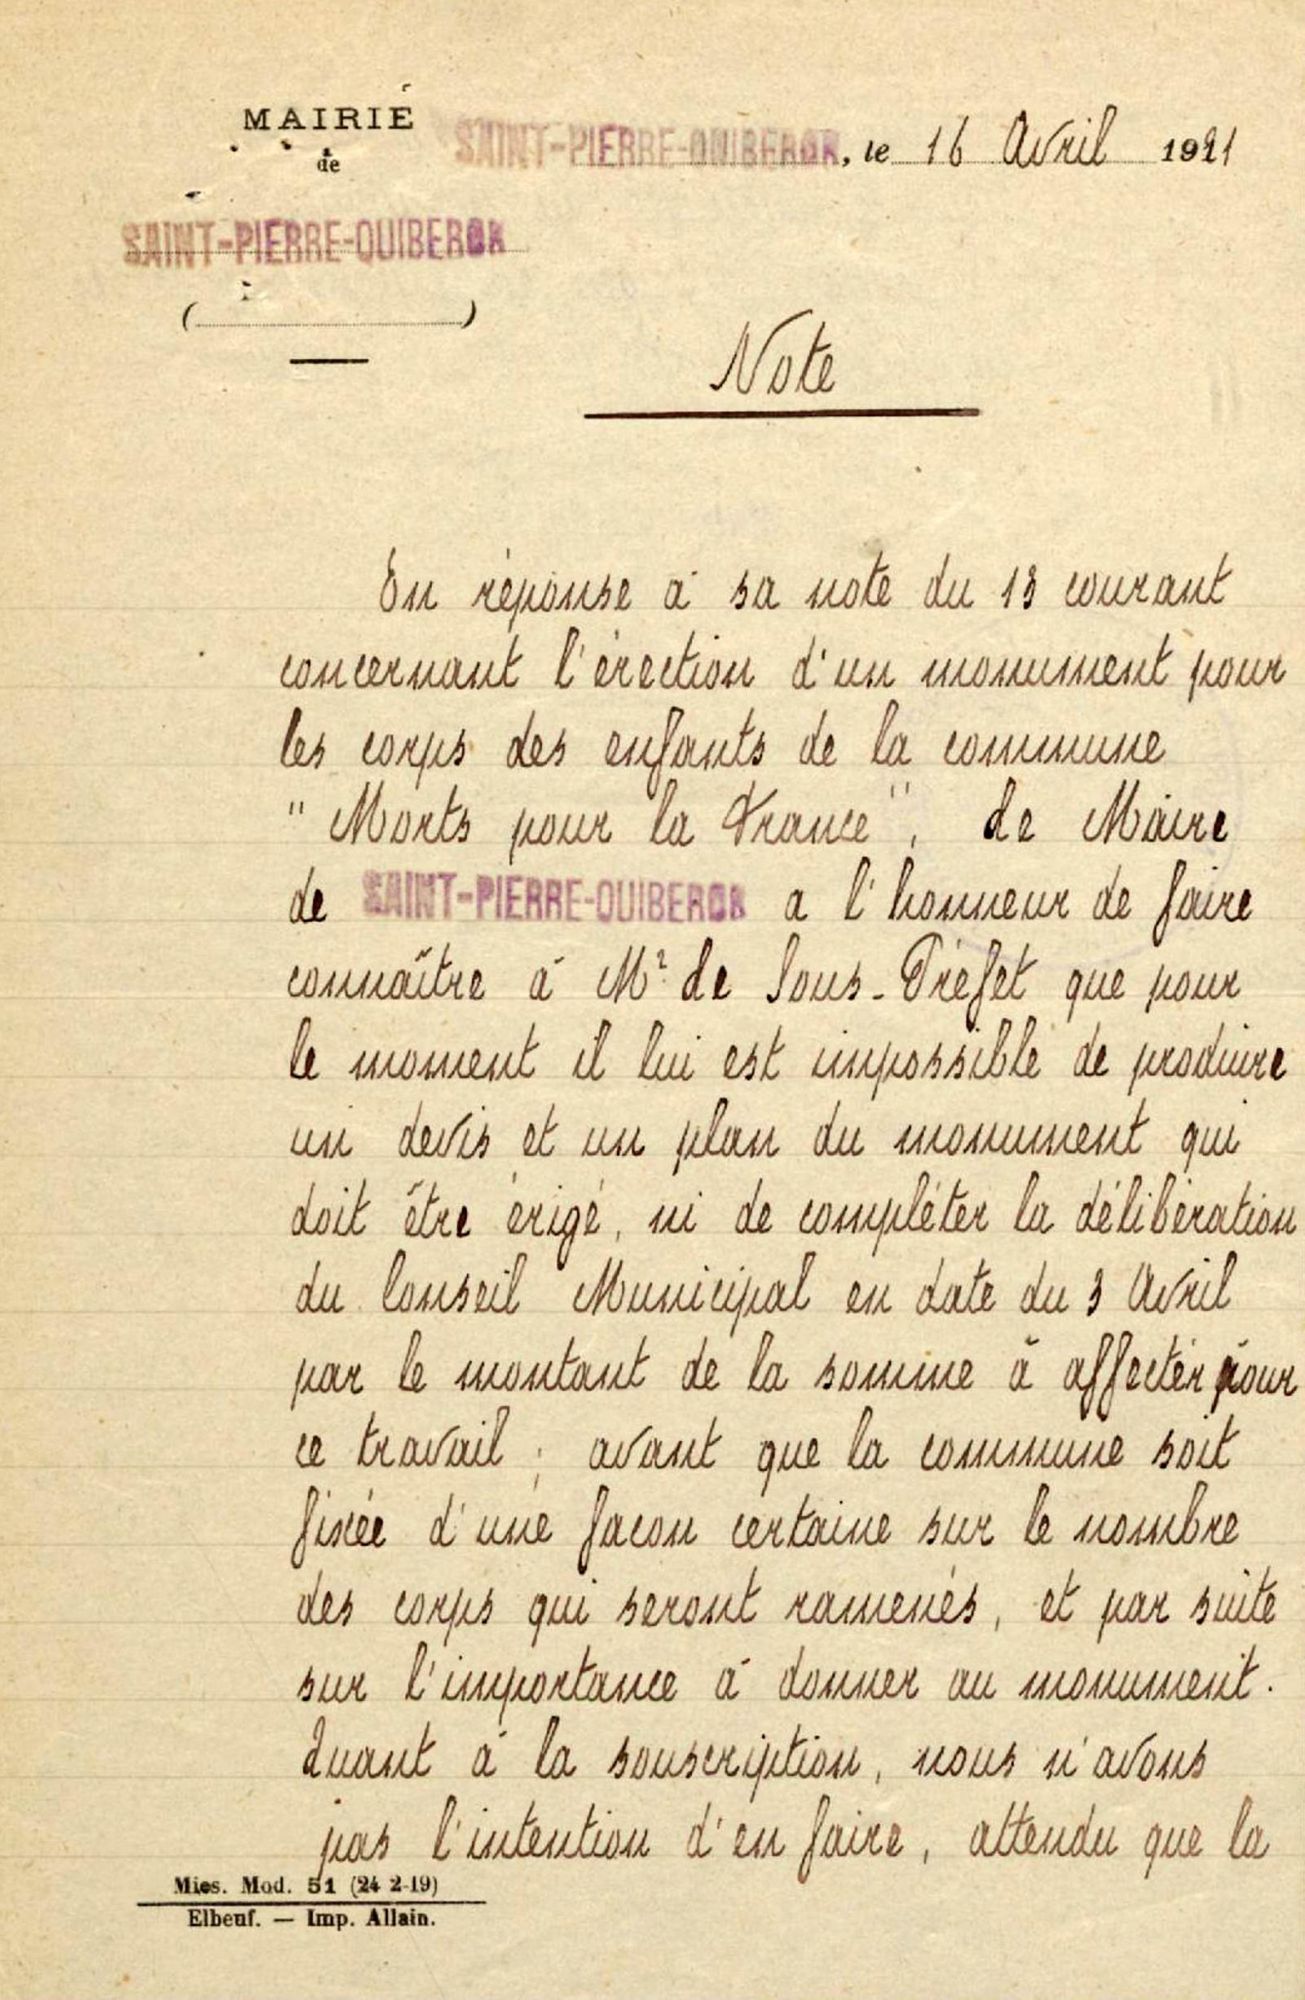 MAIRIE
de
SAINT-PIERRE-QUIBERON
SAINT-PIERRE-QUIBERON, le 16 Avril 1921
(        )
Note
En réponse à sa note du 13 courant
concernant l'érection d'un monument pour
les corps des enfants de la commune
" Morts pour la France ", Le Maire
de SAINT-PIERRE-QUIBERON a l'honneur de faire
connaître à Mr Le Sous-Préfet que pour
le moment il lui est impossible de produire
un devis et un plan du monument qui
doit être érigé, ni de compléter la délibération
du Conseil Municipal en date du 3 Avril
par le montant de la somme à affecter pour
ce travail ; avant que la commune soit
fixée d'une facon certaine sur le nombre
des corps qui seront ramenés, et par suite
sur l'importance à donner au monument.
Quant à la souscription, nous n'avons
pas l'intention d'en faire, attendu que la
Mies. Mod. 51 (24 2-19)
Elbeuf. — Imp. Allain.